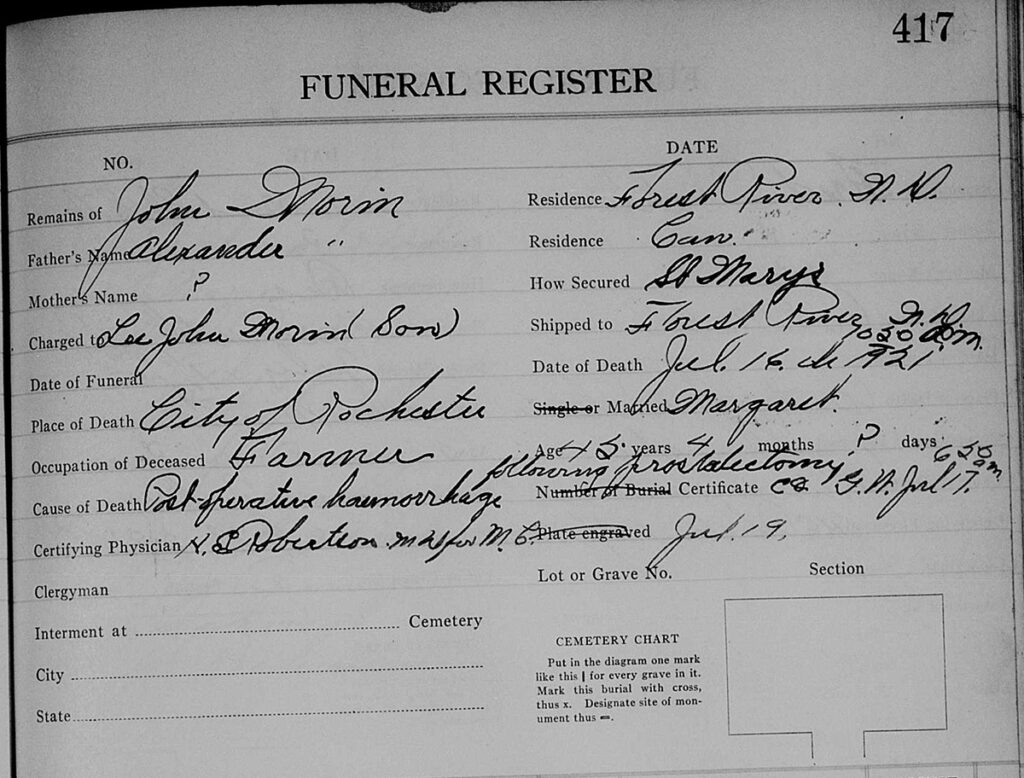 417
FUNERAL REGISTER
NO.
DATE
Remains of John Morin
Residence Forest River N.D.
Father's Name Alexander "
Residence Can.
Mother's Name ?
How Secured St Marys
Charged to Lee John Morin (Son)
Shipped to Forest River N.D.
Date of Funeral
Date of Death Jul. 16. 1921
Place of Death City of Rochester
Single or Married Margaret.
Occupation of Deceased Farmer
Age years 4 months ? days
Cause of Death Post-operative haemorrhage following prostatectomy
Number of Burial Certificate G.N. Jul 17.
Certifying Physician Robertson
Plate engraved Jul. 19,
Clergyman
Lot or Grave No.
Section
Interment at Cemetery
City
State
CEMETERY CHART
Put in the diagram one mark
like this | for every grave in it.
Mark this burial with cross,
thus x. Designate site of mon-
ument thus